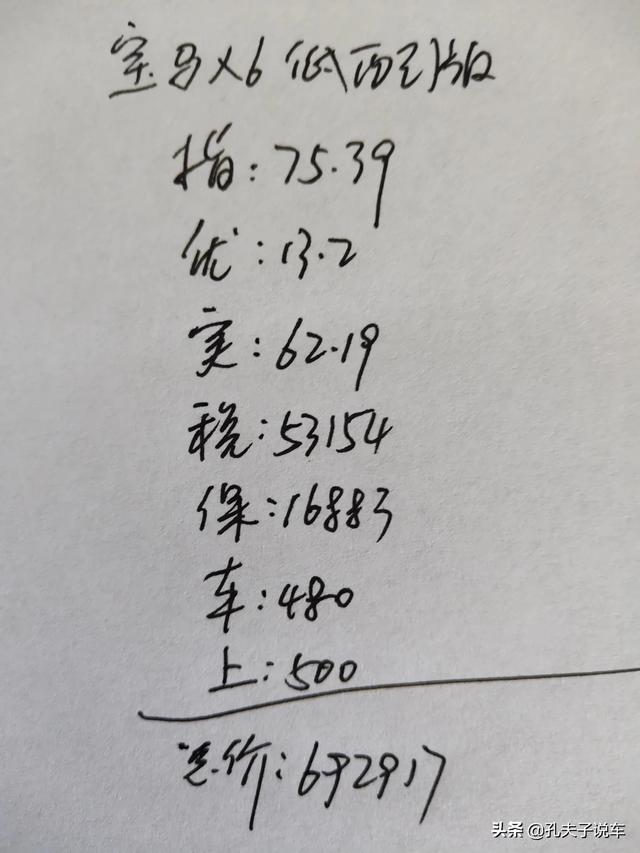 宝马X6低配版
指:75.39
优:13.2
实:62.19
税:53154
保:16883
车:480
上:500
总价:692917
头条 @孔夫子说车